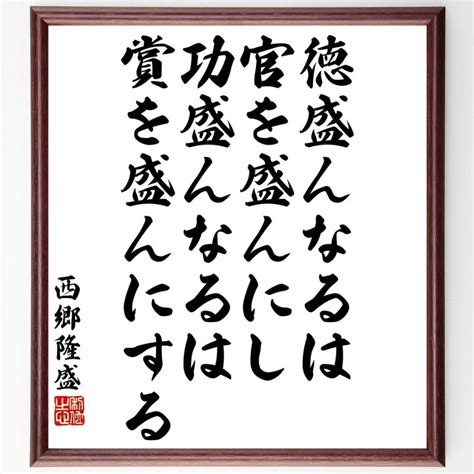 徳盛んなるは
官を盛んにし
功盛んなるは
賞を盛んにする
西郷隆盛